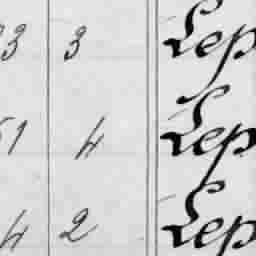 33 3 Lep
51 4 Lep
4 2 Lep